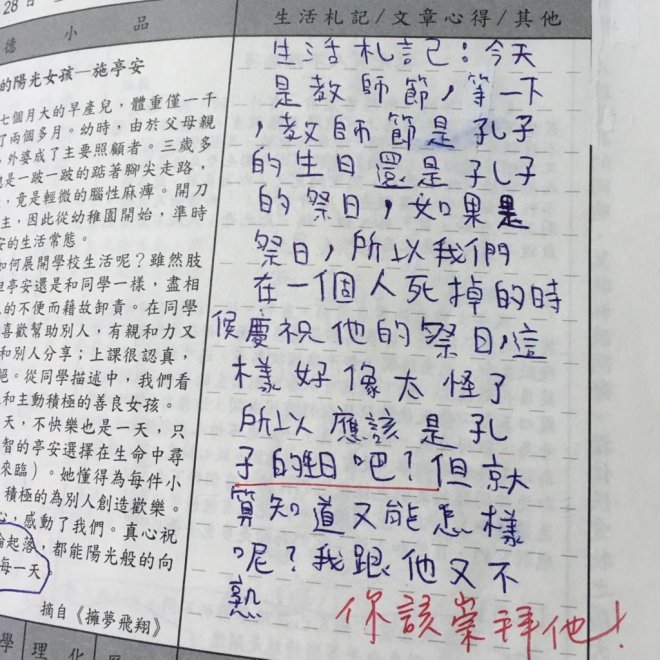 28日
生活札記/文章心得/其他
德小品
的陽光女孩—施亭安
七個月大的早產兒，體重僅一千
了兩個多月。幼時，由於父母親
，外婆成了主要照顧者。三歲多
總是一跛一跛的踮著腳尖走路，
，竟是輕微的腦性麻痺。開刀
主，因此從幼稚園開始，準時
安的生活常態。
如何展開學校生活呢？雖然肢
但亭安還是和同學一樣，盡相
的不便而藉故卸責。在同學
喜歡幫助別人，有親和力又
和別人分享；上課很認真，
。從同學描述中，我們看
和主動積極的善良女孩。
天，不快樂也是一天，只
智的亭安選擇在生命中尋
來臨）。她懂得為每件小
積極的為別人創造歡樂。
心，感動了我們。真心祝
起落，都能陽光般的向
每一天
摘自《擁夢飛翔》
學
理化
生活札記：今天
是教師節，等一下
，教師節是孔子
的生日還是孔子
的祭日，如果是
祭日，所以我們
在一個人死掉的時
候慶祝他的祭日，這
樣好像太怪了
所以應該是孔
子的生日吧？但就
算知道又能怎樣
呢？我跟他又不
熟
你該崇拜他！